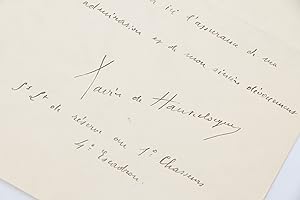 ici l'assurance de ma
admiration et de mon sincère dévouement
Xavier de Hauteclocque
St Lt de réserve au 1er Chasseurs
4e Escadron.